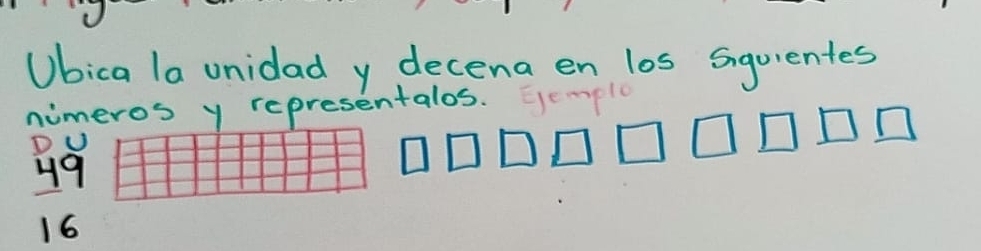 Ubica la unidad y decena en los siguientes
números y represéntalos. Ejemplo
D U
49
16